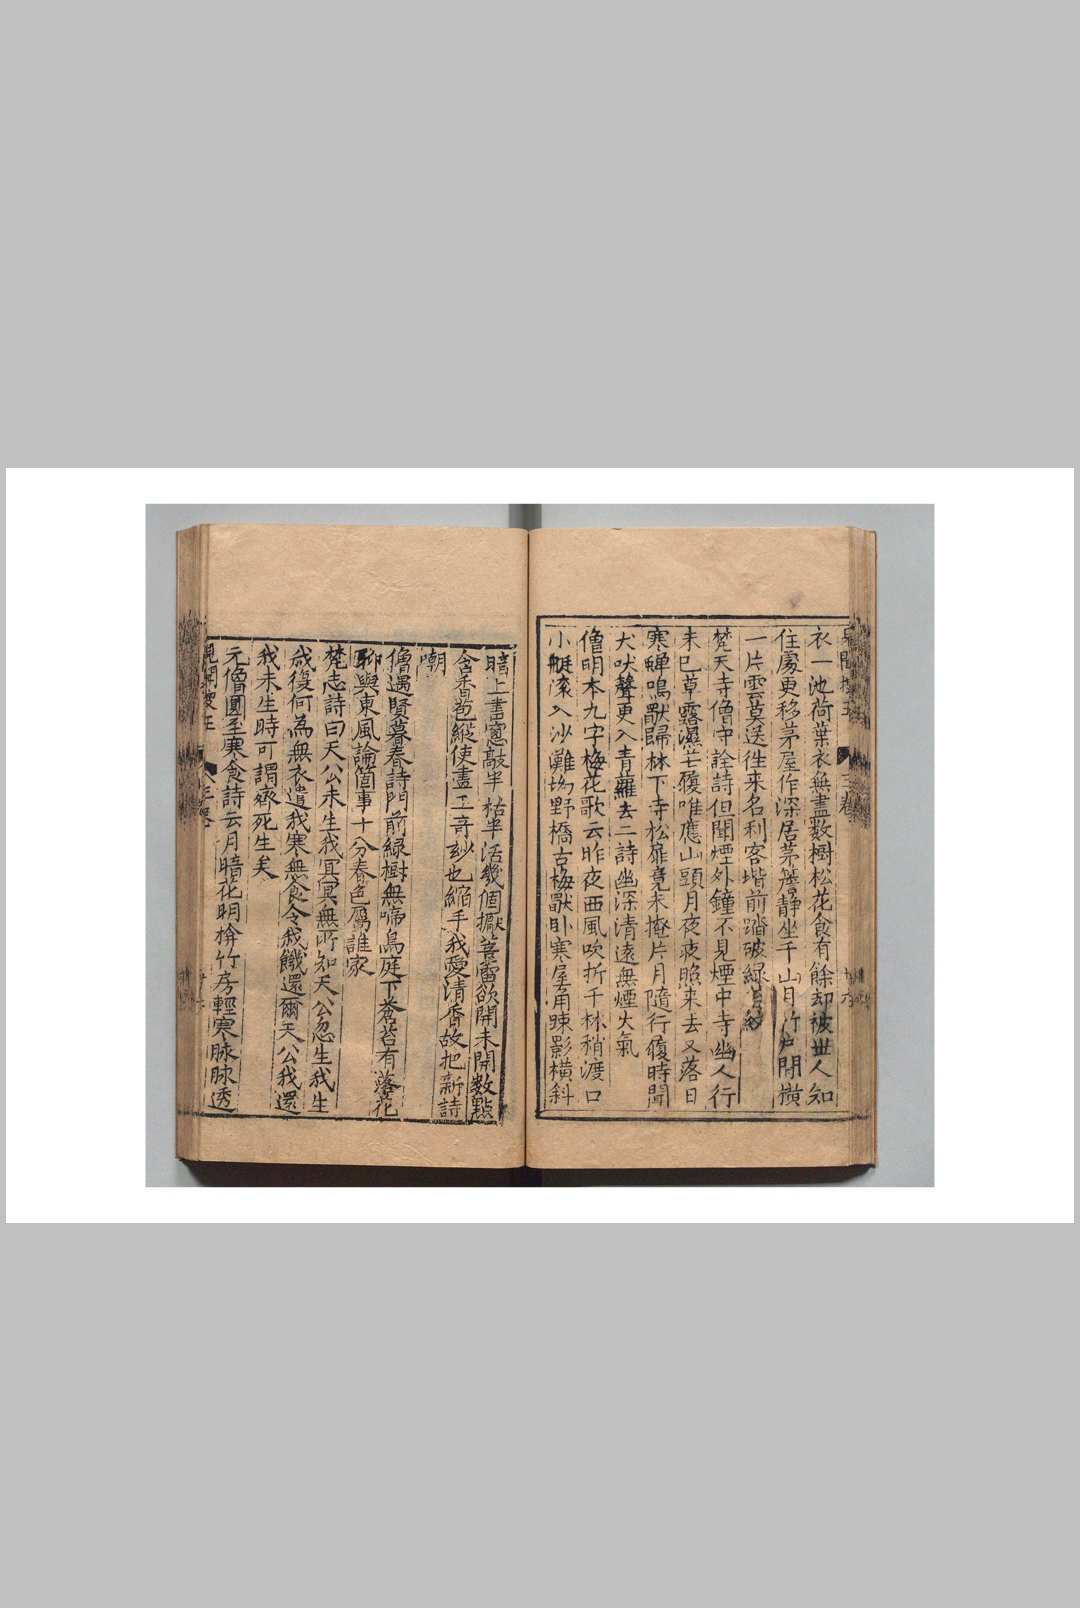 衣一池荷葉衣無盡數樹松花食有餘却被世人知
住處更移茅屋作深居茅簷靜坐千山月竹戶閒橫
一片雲莫送往來名利客堦前踏破綠
梵天寺僧守詮詩但聞煙外鐘不見煙中寺幽人行
未已草露濕芒屨唯應山頭月夜夜照來去又落日
寒蟬鳴獸歸林下寺松扉竟未掩片月隨行屨時聞
犬吠聲更入青蘿去二詩幽深清遠無煙火氣
僧明本九字梅花歌云昨夜西風吹折千林梢渡口
小艇滾入沙灘坳野橋古梅獸卧寒屋角踈影橫斜
暗上書窓敲半枯半活幾個擫蓓蕾欲開未開數點
含香苞縱使畫工奇玅也縮手我愛清香故把新詩
嘲
僧遇賢暮春詩門前綠樹無啼鳥庭下蒼苔有落花
聊與東風論箇事十分春色屬誰家
梵志詩曰天公未生我冥冥無所知天公忽生我生
我復何為無衣遣我寒無食令我饑還爾天公我還
我未生時可謂齊死生矣
元僧圓至寒食詩云月暗花明掩竹房輕寒脉脉透